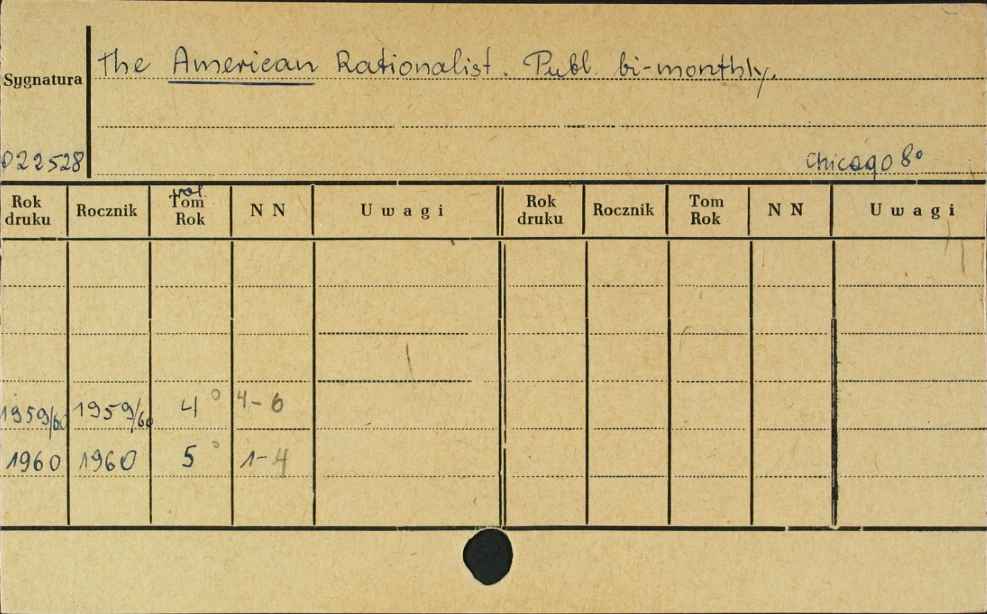 The American Rationalist. Publ. bi-monthly.
Sygnatura
022528
Chicago 8°
Rok druku Rocznik vol Tom Rok N N Uwagi Rok druku Rocznik Tom Rok N N Uwagi
1959/60 1959/60 4° 4-6
1960 1960 5° 1-4